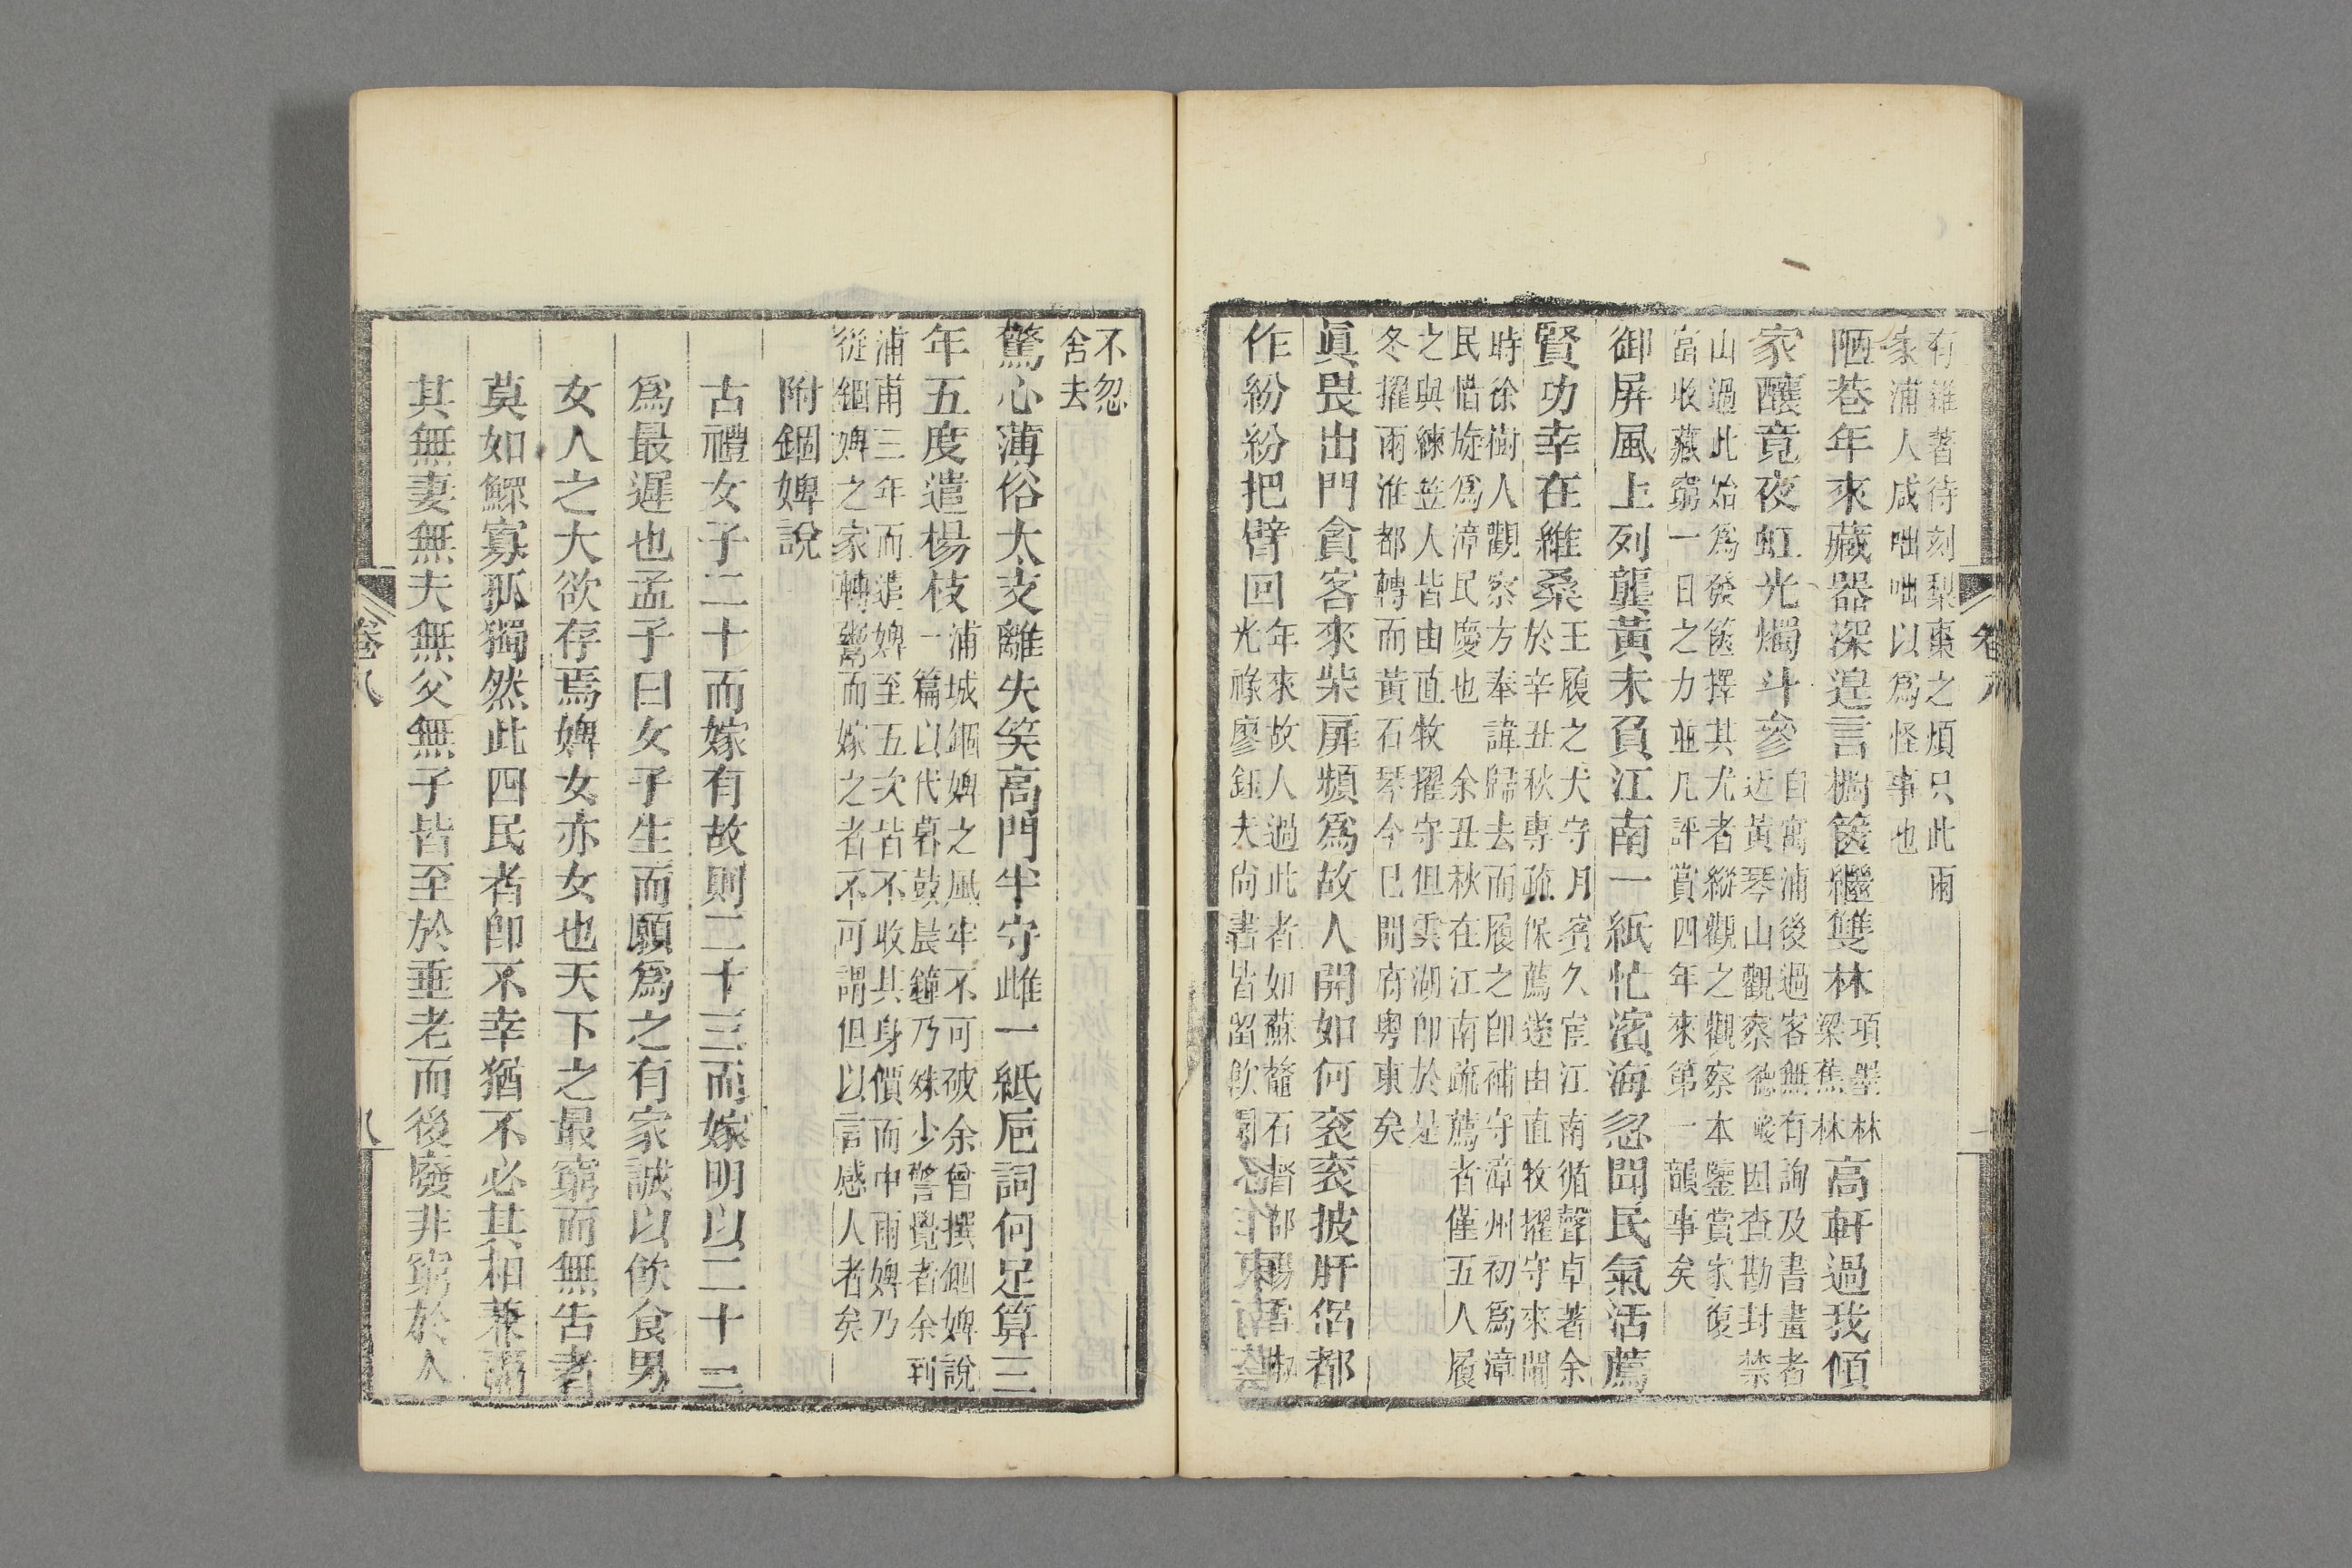 有雜著待刻梨棗之煩只此兩
家浦人咸咄咄以爲怪事也
陋巷年來藏器深遑言櫥篋繼雙林
項墨林
梁蕉林
高軒過我傾
家釀竟夜虹光燭斗參
自寓浦後過客無有詢及書畫者
近黃琴山觀察德峻因查勘封禁
山過此始爲發篋擇其尤者縱觀之觀察本鑒賞家復
富收藏窮一日之力並几評賞四年來第一韻事矣
御屏風上列龔黃未負江南一紙忙濱海忽聞民氣活薦
賢功幸在維桑
王履之大守月賓久宦江南循聲卓著余
於辛丑秋專疏保薦遂由直牧擢守來閩
時徐樹人觀察方奉諱歸去而履之卽補守漳州初爲漳
民惜旋爲漳民慶也 余丑秋在江南疏薦者僅五人履
之與練笠人皆由直牧擢守但雲湖卽於是
冬擢兩淮都轉而黃石琴今已開府粵東矣
眞畏出門貪客來柴扉頻爲故人開如何袞袞披肝侶都
作紛紛把臂回
年來故人過此者如蘇鼇石督部
光祿廖鈺夫尚書皆留飲
不忍
舍去
驚心薄俗太支離失笑高門半守雌一紙巵詞何足算三
年五度遣楊枝
浦城錮婢之風牢不可破余曾撰錮婢說
一篇以代暮鼓晨鐘乃殊少警覺者余到
浦甫三年而遣婢至五次皆不收其身價而中兩婢乃
從錮婢之家轉鬻而嫁之者不可謂但以言感人者矣
附錮婢說
古禮女子二十而嫁有故則二十三而嫁明以二十三
爲最遲也孟子曰女子生而願爲之有家誠以飲食男
女人之大欲存焉婢女亦女也天下之最窮而無告者
莫如鰥寡孤獨然此四民者卽不幸猶不必其相兼彌
其無妻無夫無父無子皆至於垂老而後廢非窮於人
卷八
八